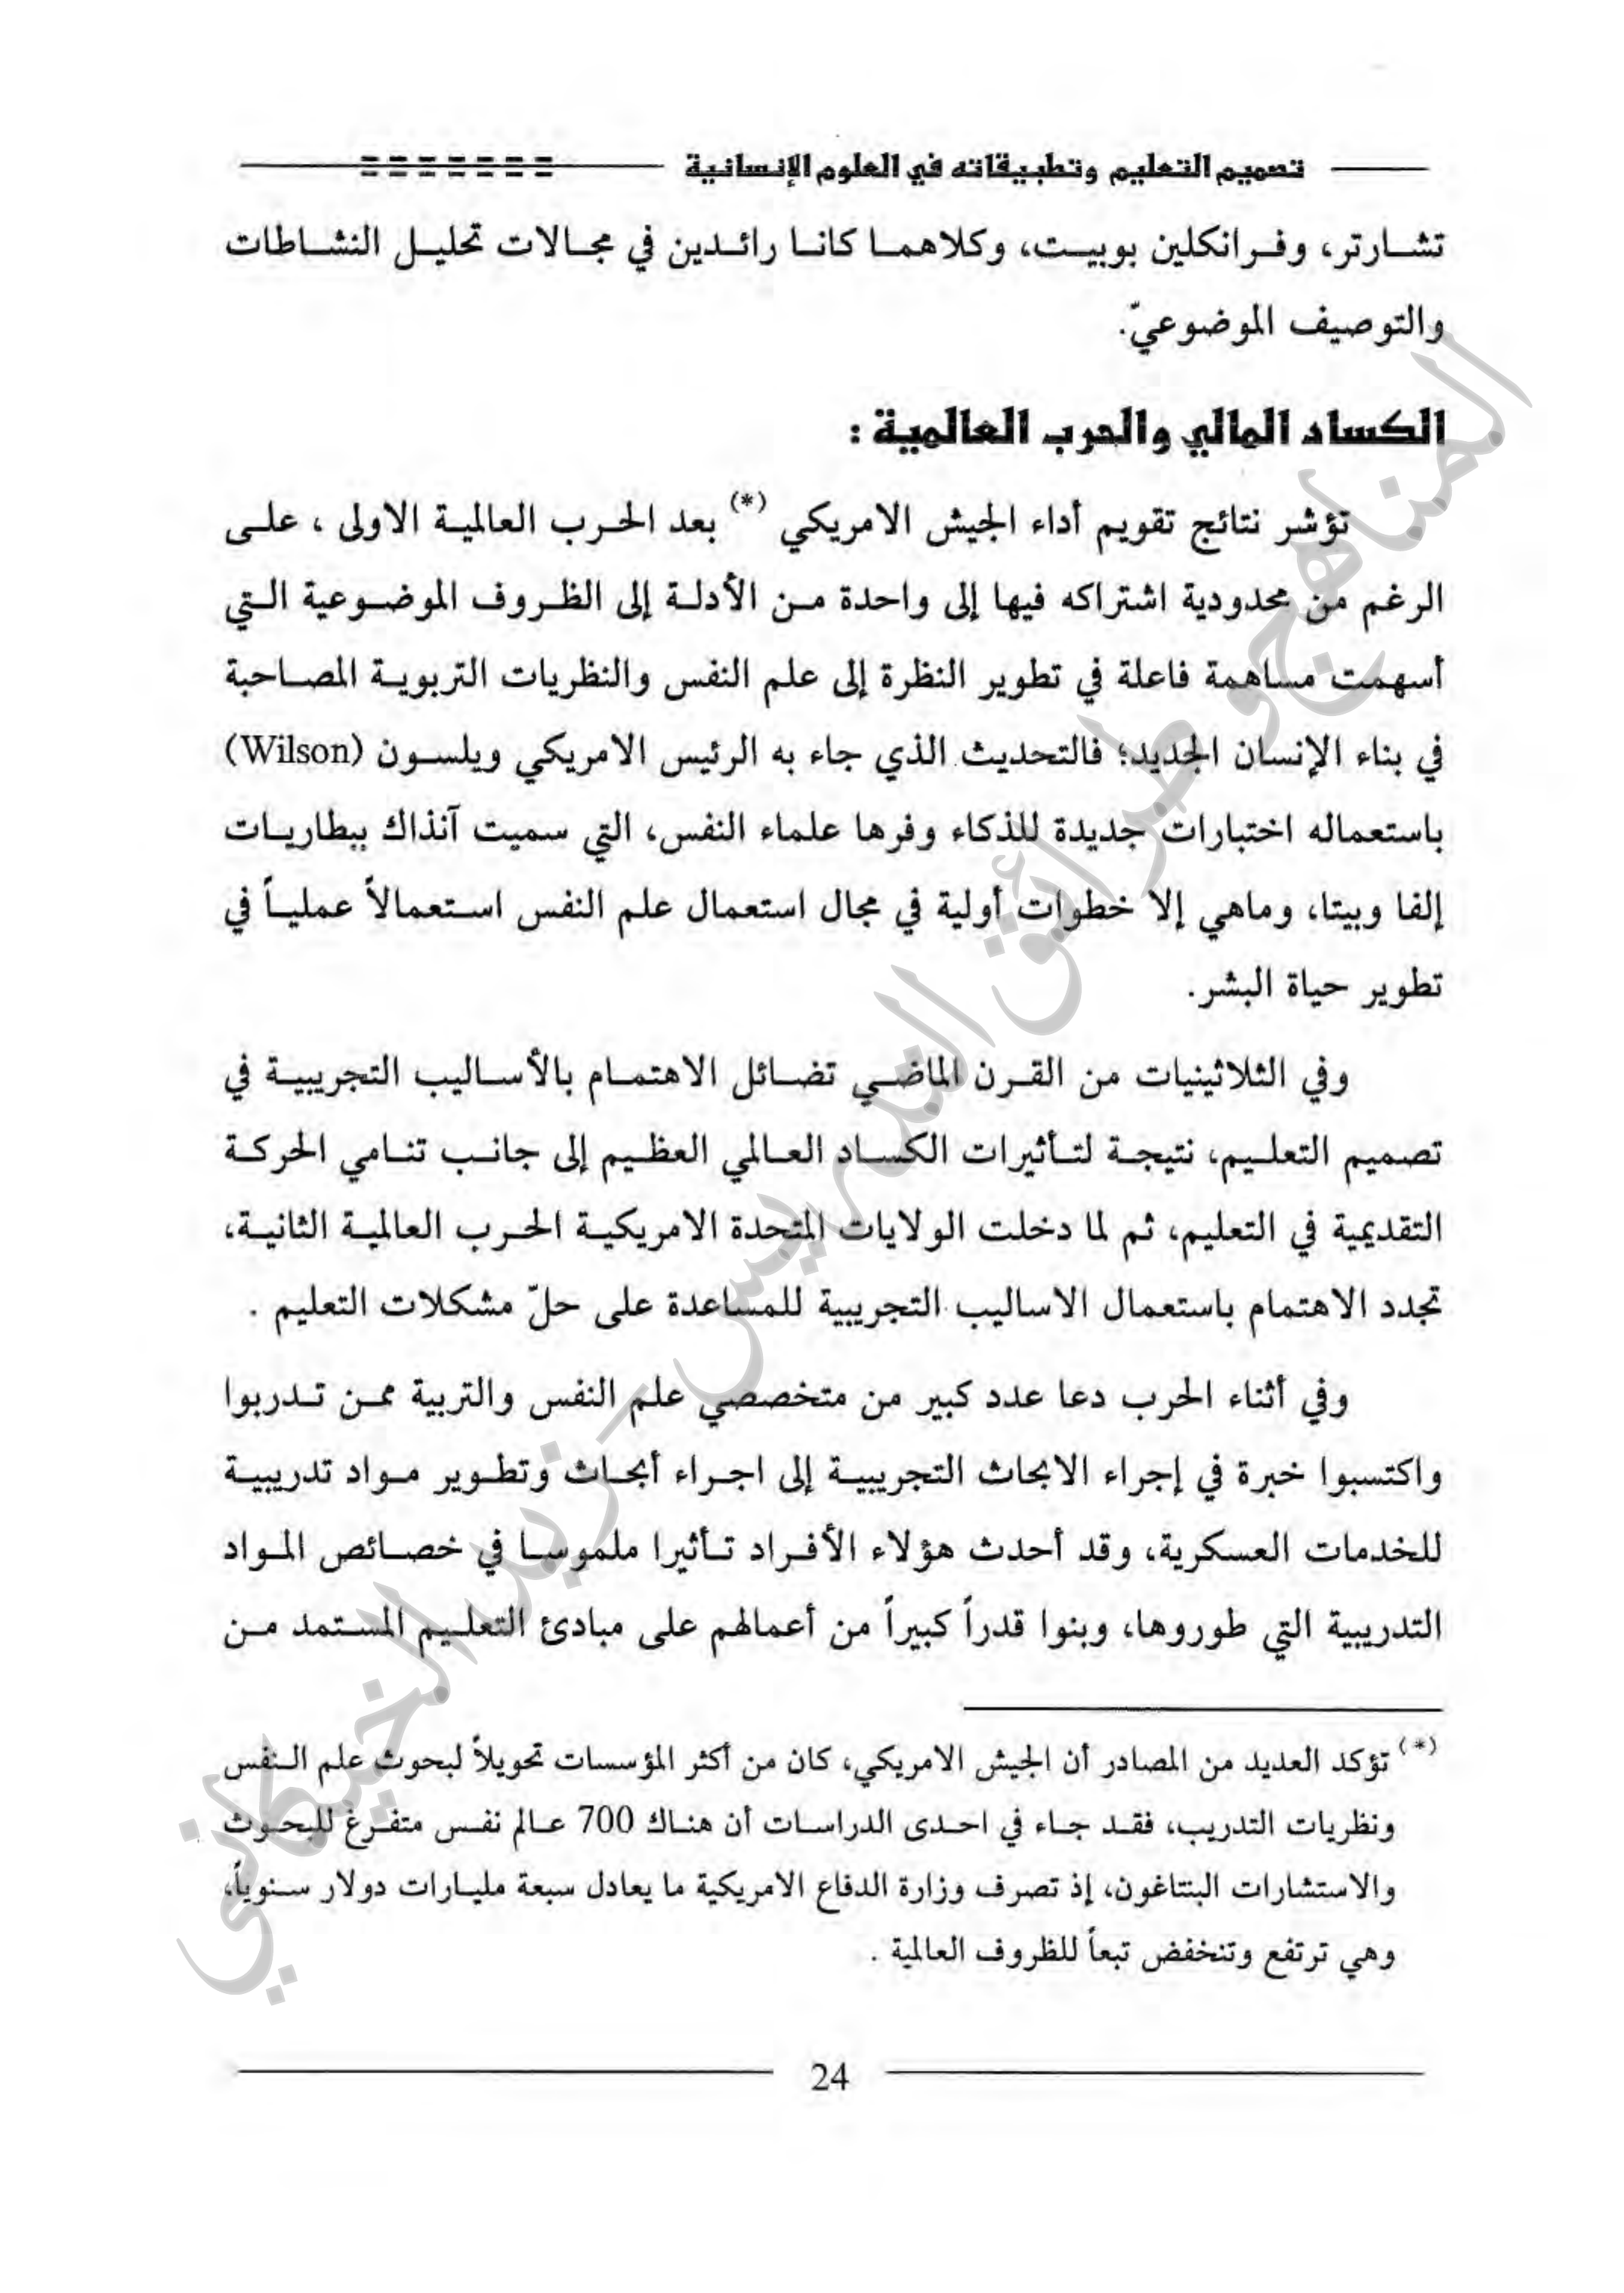 تصميم التعليم وتطبيقاته في العلوم الإنسانية
تشارتر، وفرانكلين بوبيت، وكلاهما كانا رائدين في مجالات تحليل النشاطات
والتوصيف الموضوعيّ.
الكساد المالي والحرب العالمية :
تؤشر نتائج تقويم أداء الجيش الامريكي (*) بعد الحرب العالمية الاولى ، على
الرغم من محدودية اشتراكه فيها إلى واحدة من الأدلة إلى الظروف الموضوعية التي
أسهمت مساهمة فاعلة في تطوير النظرة إلى علم النفس والنظريات التربوية المصاحبة
في بناء الإنسان الجديد؛ فالتحديث الذي جاء به الرئيس الامريكي ويلسون (Wilson)
باستعماله اختبارات جديدة للذكاء وفرها علماء النفس، التي سميت آنذاك ببطاريات
إلفا وبيتا، وماهي إلا خطوات أولية في مجال استعمال علم النفس استعمالاً عملياً في
تطوير حياة البشر.
وفي الثلاثينيات من القرن الماضي تضائل الاهتمام بالأساليب التجريبية في
تصميم التعليم، نتيجة لتأثيرات الكساد العالمي العظيم إلى جانب تنامي الحركة
التقديمية في التعليم، ثم لما دخلت الولايات المتحدة الامريكية الحرب العالمية الثانية،
تجدد الاهتمام باستعمال الاساليب التجريبية للمساعدة على حلّ مشكلات التعليم .
وفي أثناء الحرب دعا عدد كبير من متخصصي علم النفس والتربية ممن تدربوا
واكتسبوا خبرة في إجراء الابحاث التجريبية إلى اجراء أبحاث وتطوير مواد تدريبية
للخدمات العسكرية، وقد أحدث هؤلاء الأفراد تأثيرا ملموسا في خصائص المواد
التدريبية التي طوروها، وبنوا قدراً كبيراً من أعمالهم على مبادئ التعليم المستمد من
(*) تؤكد العديد من المصادر أن الجيش الامريكي، كان من أكثر المؤسسات تحويلاً لبحوث علم النفس
ونظريات التدريب، فقد جاء في احدى الدراسات أن هناك 700 عالم نفس متفرغ للبحوث
والاستشارات البنتاغون، إذ تصرف وزارة الدفاع الامريكية ما يعادل سبعة مليارات دولار سنوياً،
وهي ترتفع وتنخفض تبعاً للظروف العالمية .
24
المناهج وطرائق التدريس - زيد الخيكاني